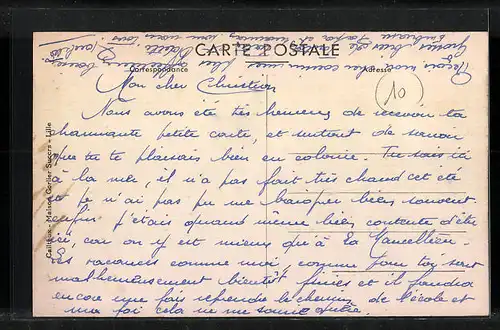 CARTE POSTALE
Correspondance
Adresse
10
Mon cher Christian
Nous avons été très heureux de recevoir ta
charmante petite carte, et surtout de savoir
que tu te plaisais bien en colonie. Tu sais ici
à la mer, il n'a pas fait très chaud cet été
et je n'ai pas pu me baigner bien souvent
enfin j'étais quand même bien contente d'être
ici, car on y est mieux qu'à La
Les vacances comme moi, comme pour toi sont
malheureusement bientôt finies et il faudra
encore une fois reprendre le chemin de l'école et
ma foi cela ne me sourit guère.
Reçois mon cher cousin mes plus
grosses bises de
Cailteux - Maison Carlier Succrs - Lille